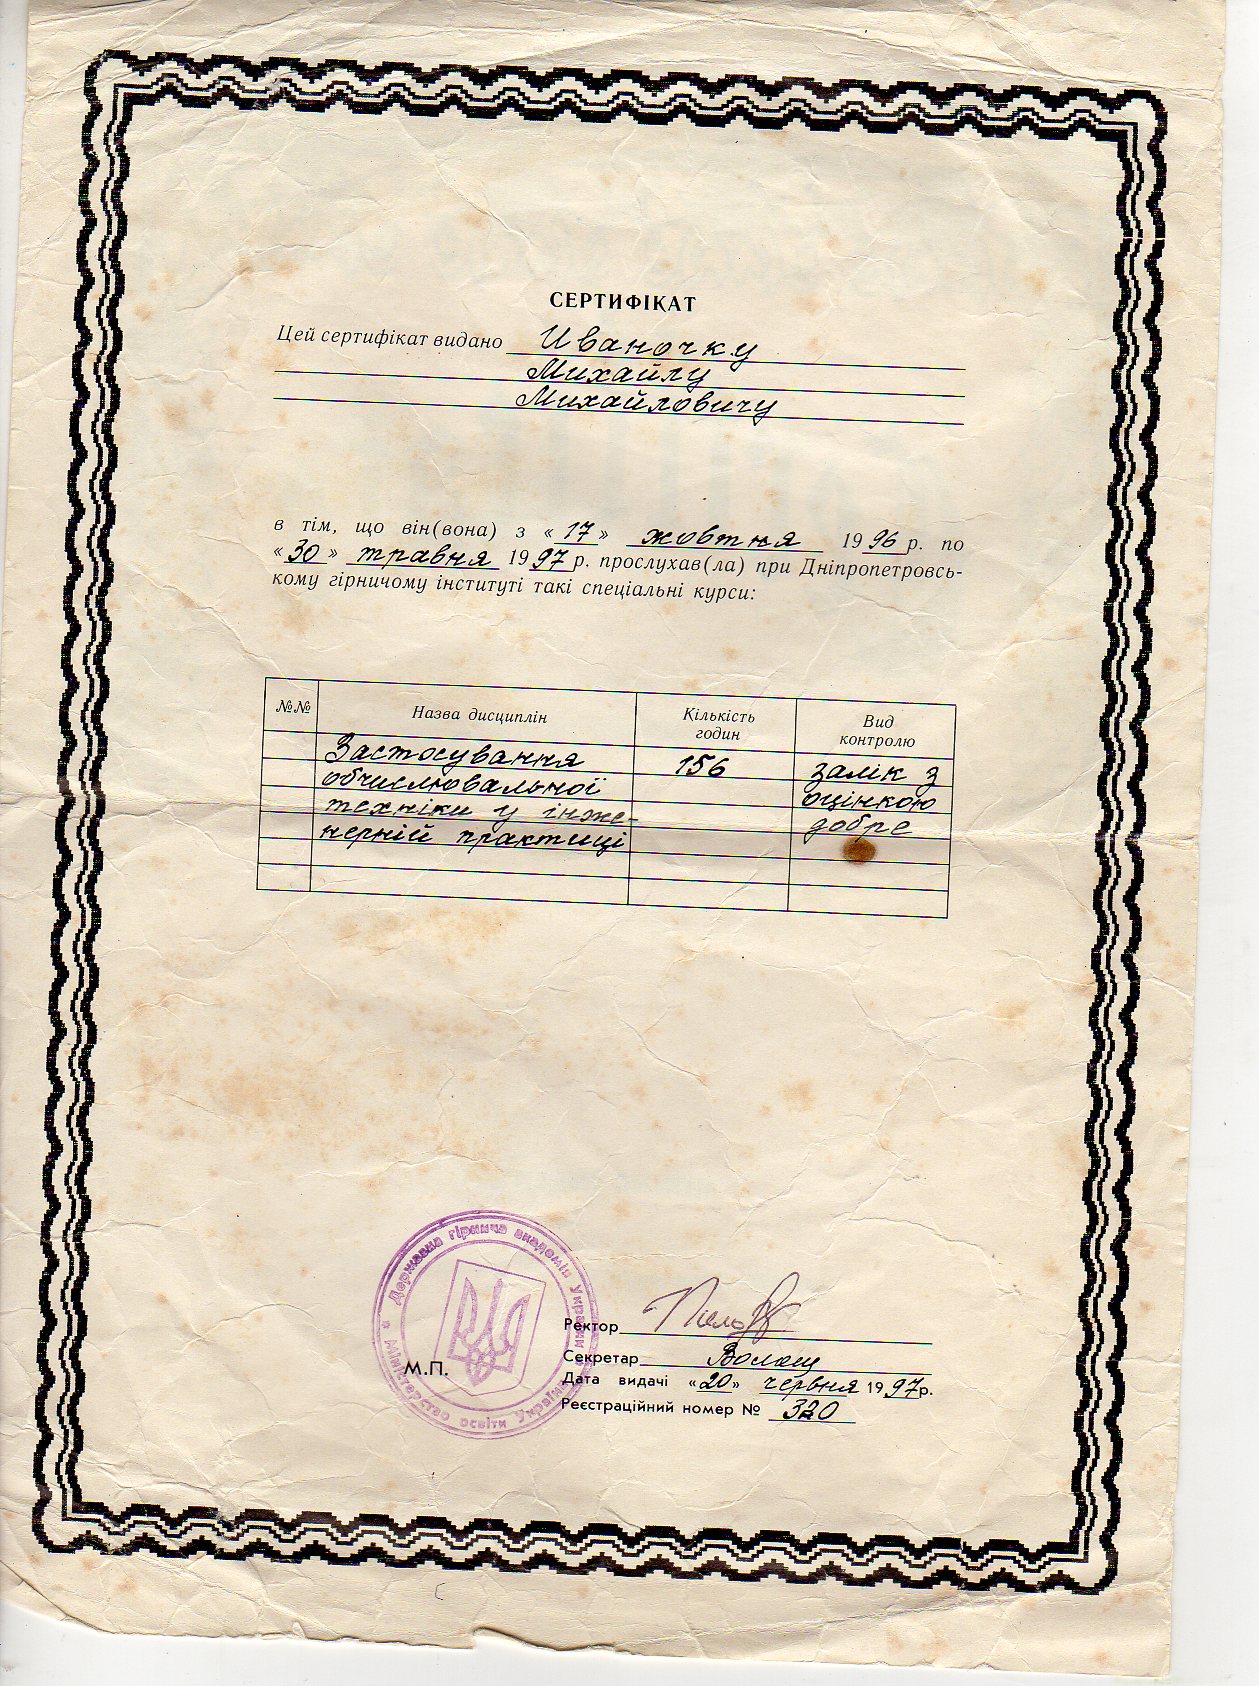 СЕРТИФІКАТ
Цей сертифікат видано Иваночку
Михайлу
Михайловичу
в тім, що він(вона) з «17» жовтня 1996 р. по
«30» травня 1997 р. прослухав(ла) при Дніпропетровсь-
кому гірничому інституті такі спеціальні курси:
№№ Назва дисциплін Кількість годин Вид контролю
Застосування 156 залік з
обчислювальної оцінкою
техніки у інже- добре
нерній практиці
Державна гірнича академія України
Міністерство освіти України
М.П.
Ректор
Секретар
Дата видачі «20» червня 1997р.
Реєстраційний номер № 320